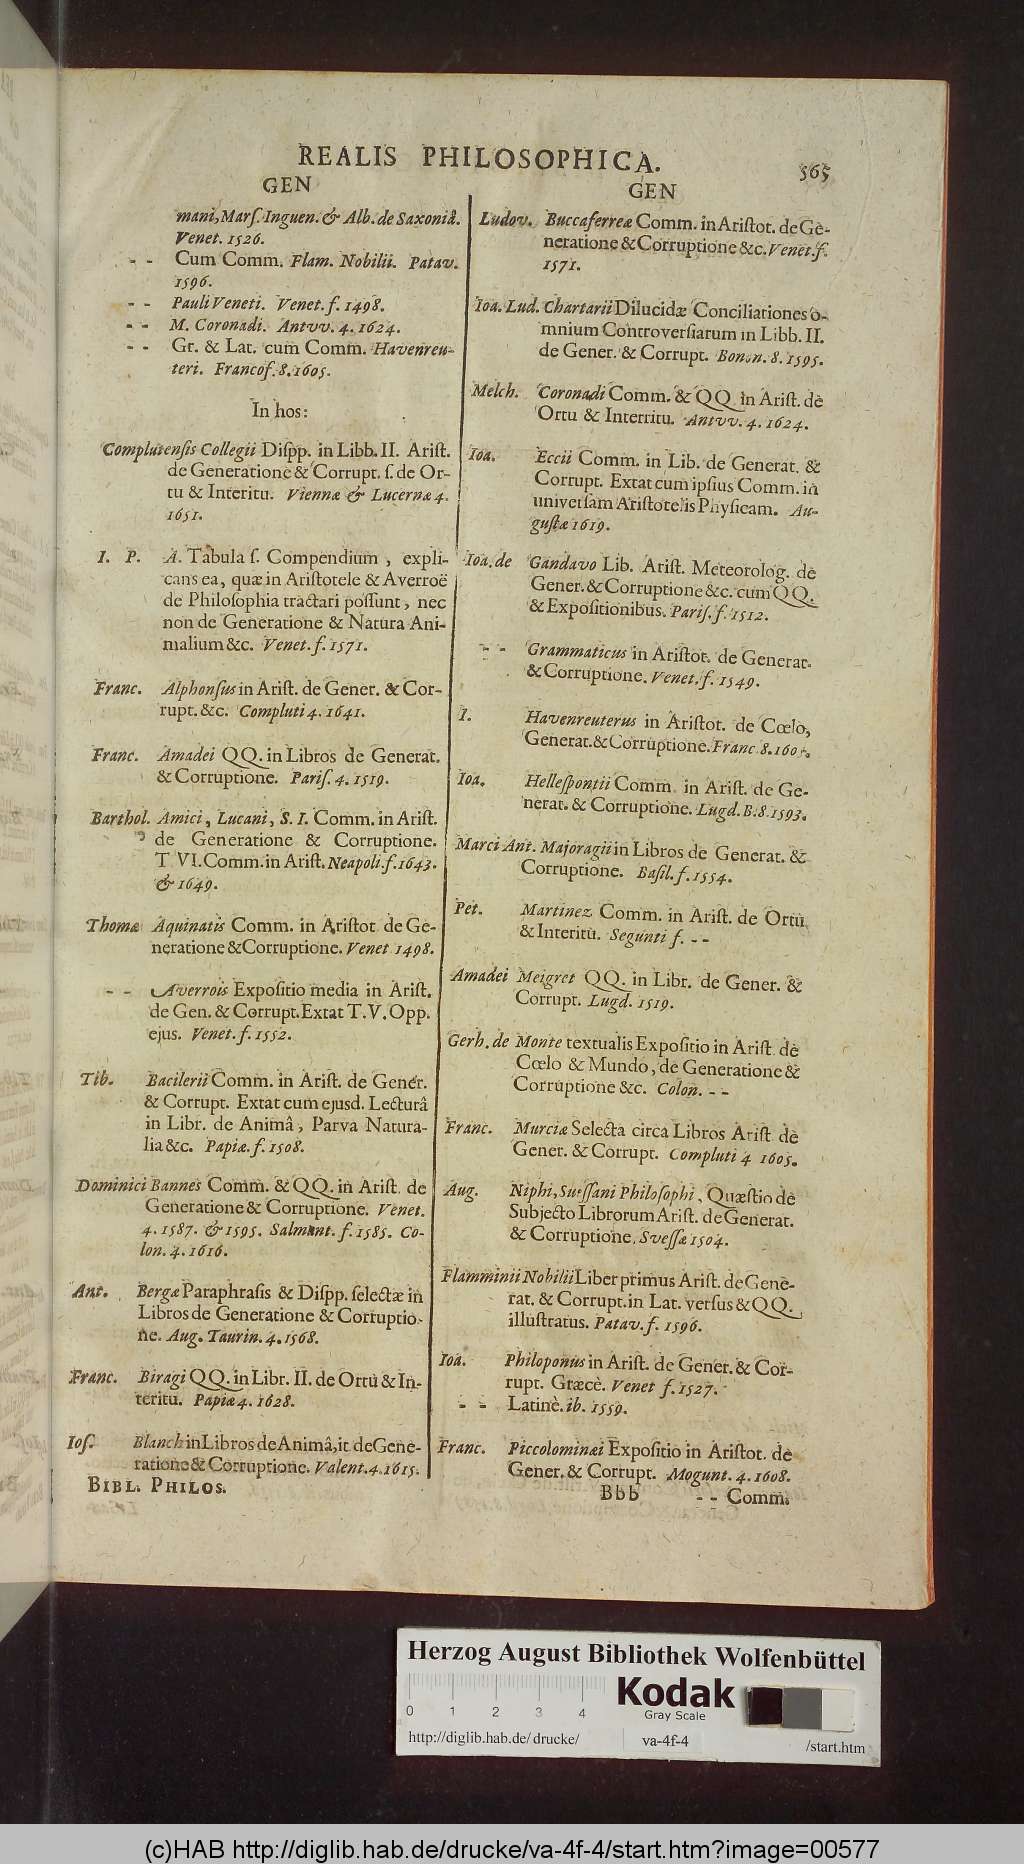 REALIS PHILOSOPHICA.
565
GEN
mani, Marſ. Inguen. & Alb. de Saxoniâ.
Venet. 1526.
- - Cum Comm. Flam. Nobilii. Patav.
1596.
- - Pauli Veneti. Venet. f. 1498.
- - M. Coronadi. Antvv. 4. 1624.
- - Gr. & Lat. cum Comm. Havenreu-
teri. Francof. 8. 1605.
In hos:
Complutenſis Collegii Diſpp. in Libb. II. Ariſt.
de Generatione & Corrupt. ſ. de Or-
tu & Interitu. Viennæ & Lucernæ 4.
1651.
I. P. A. Tabula ſ. Compendium, expli-
cans ea, quæ in Ariſtotele & Averroë
de Philoſophia tractari poſſunt, nec
non de Generatione & Natura Ani-
malium &c. Venet. f. 1571.
Franc. Alphonſus in Ariſt. de Gener. & Cor-
rupt. &c. Compluti 4. 1641.
Franc. Amadei QQ. in Libros de Generat.
& Corruptione. Pariſ. 4. 1519.
Barthol. Amici, Lucani, S. I. Comm. in Ariſt.
de Generatione & Corruptione.
T VI. Comm. in Ariſt. Neapoli. f. 1643.
& 1649.
Thomæ Aquinatis Comm. in Ariſtot de Ge-
neratione & Corruptione. Venet 1498.
- - Averrois Expoſitio media in Ariſt.
de Gen. & Corrupt. Extat T. V. Opp.
ejus. Venet. f. 1552.
Tib. Bacilerii Comm. in Ariſt. de Gener.
& Corrupt. Extat cum ejusd. Lecturâ
in Libr. de Animâ, Parva Natura-
lia &c. Papiæ. f. 1508.
Dominici Bannes Comm. & QQ. in Ariſt. de
Generatione & Corruptione. Venet.
4. 1587. & 1595. Salmant. f. 1585. Co-
lon. 4. 1616.
Ant. Bergæ Paraphraſis & Diſpp. ſelectæ in
Libros de Generatione & Corruptio-
ne. Aug. Taurin. 4. 1568.
Franc. Biragi QQ. in Libr. II. de Ortu & In-
teritu. Papiæ 4. 1628.
Ioſ. Blanch in Libros de Animâ, it de Gene-
ratione & Corruptione. Valent. 4. 1615.
BIBL. PHILOS.
GEN
Ludov. Buccaferreæ Comm. in Ariſtot. de Ge-
neratione & Corruptione &c. Venet. f.
1571.
Ioa. Lud. Chartarii Dilucidæ Conciliationes o-
mnium Controverſiarum in Libb. II.
de Gener. & Corrupt. Bonon. 8. 1595.
Melch. Coronadi Comm. & QQ. in Ariſt. de
Ortu & Interritu. Antvv. 4. 1624.
Ioa. Eccii Comm. in Lib. de Generat. &
Corrupt. Extat cum ipſius Comm. in
univerſam Ariſtotelis Phyſicam. Au-
guſtæ 1619.
Ioa. de Gandavo Lib. Ariſt. Meteorolog. de
Gener. & Corruptione &c. cum QQ.
& Expoſitionibus. Pariſ. f. 1512.
- - Grammaticus in Ariſtot. de Generat.
& Corruptione. Venet. f. 1549.
I. Havenreuterus in Ariſtot. de Cœlo,
Generat. & Corruptione. Franc. 8. 1605.
Ioa. Helleſpontii Comm. in Ariſt. de Ge-
nerat. & Corruptione. Lugd. B. 8. 1593.
Marci Ant. Majoragii in Libros de Generat. &
Corruptione. Baſil. f. 1554.
Pet. Martinez Comm. in Ariſt. de Ortu
& Interitu. Segunti f. - -
Amadei Meigret QQ. in Libr. de Gener. &
Corrupt. Lugd. 1519.
Gerh. de Monte textualis Expoſitio in Ariſt. de
Cœlo & Mundo, de Generatione &
Corruptione &c. Colon. - -
Franc. Murciæ Selecta circa Libros Ariſt de
Gener. & Corrupt. Compluti 4 1605.
Aug. Niphi, Sueſſani Philoſophi, Quæſtio de
Subjecto Librorum Ariſt. de Generat.
& Corruptione. Sveſſæ 1504.
Flamminii Nobilii Liber primus Ariſt. de Gene-
rat. & Corrupt. in Lat. verſus & QQ.
illuſtratus. Patav. f. 1596.
Ioa. Philoponus in Ariſt. de Gener. & Cor-
rupt. Græcè. Venet f. 1527.
- - Latinè. ib. 1559.
Franc. Piccolominæi Expoſitio in Ariſtot. de
Gener. & Corrupt. Mogunt. 4. 1608.
Bbb
- - Comm.
Herzog August Bibliothek Wolfenbüttel
0 1 2 3 4
Kodak
Gray Scale
http://diglib.hab.de/drucke/
va-4f-4
/start.htm
(c)HAB http://diglib.hab.de/drucke/va-4f-4/start.htm?image=00577